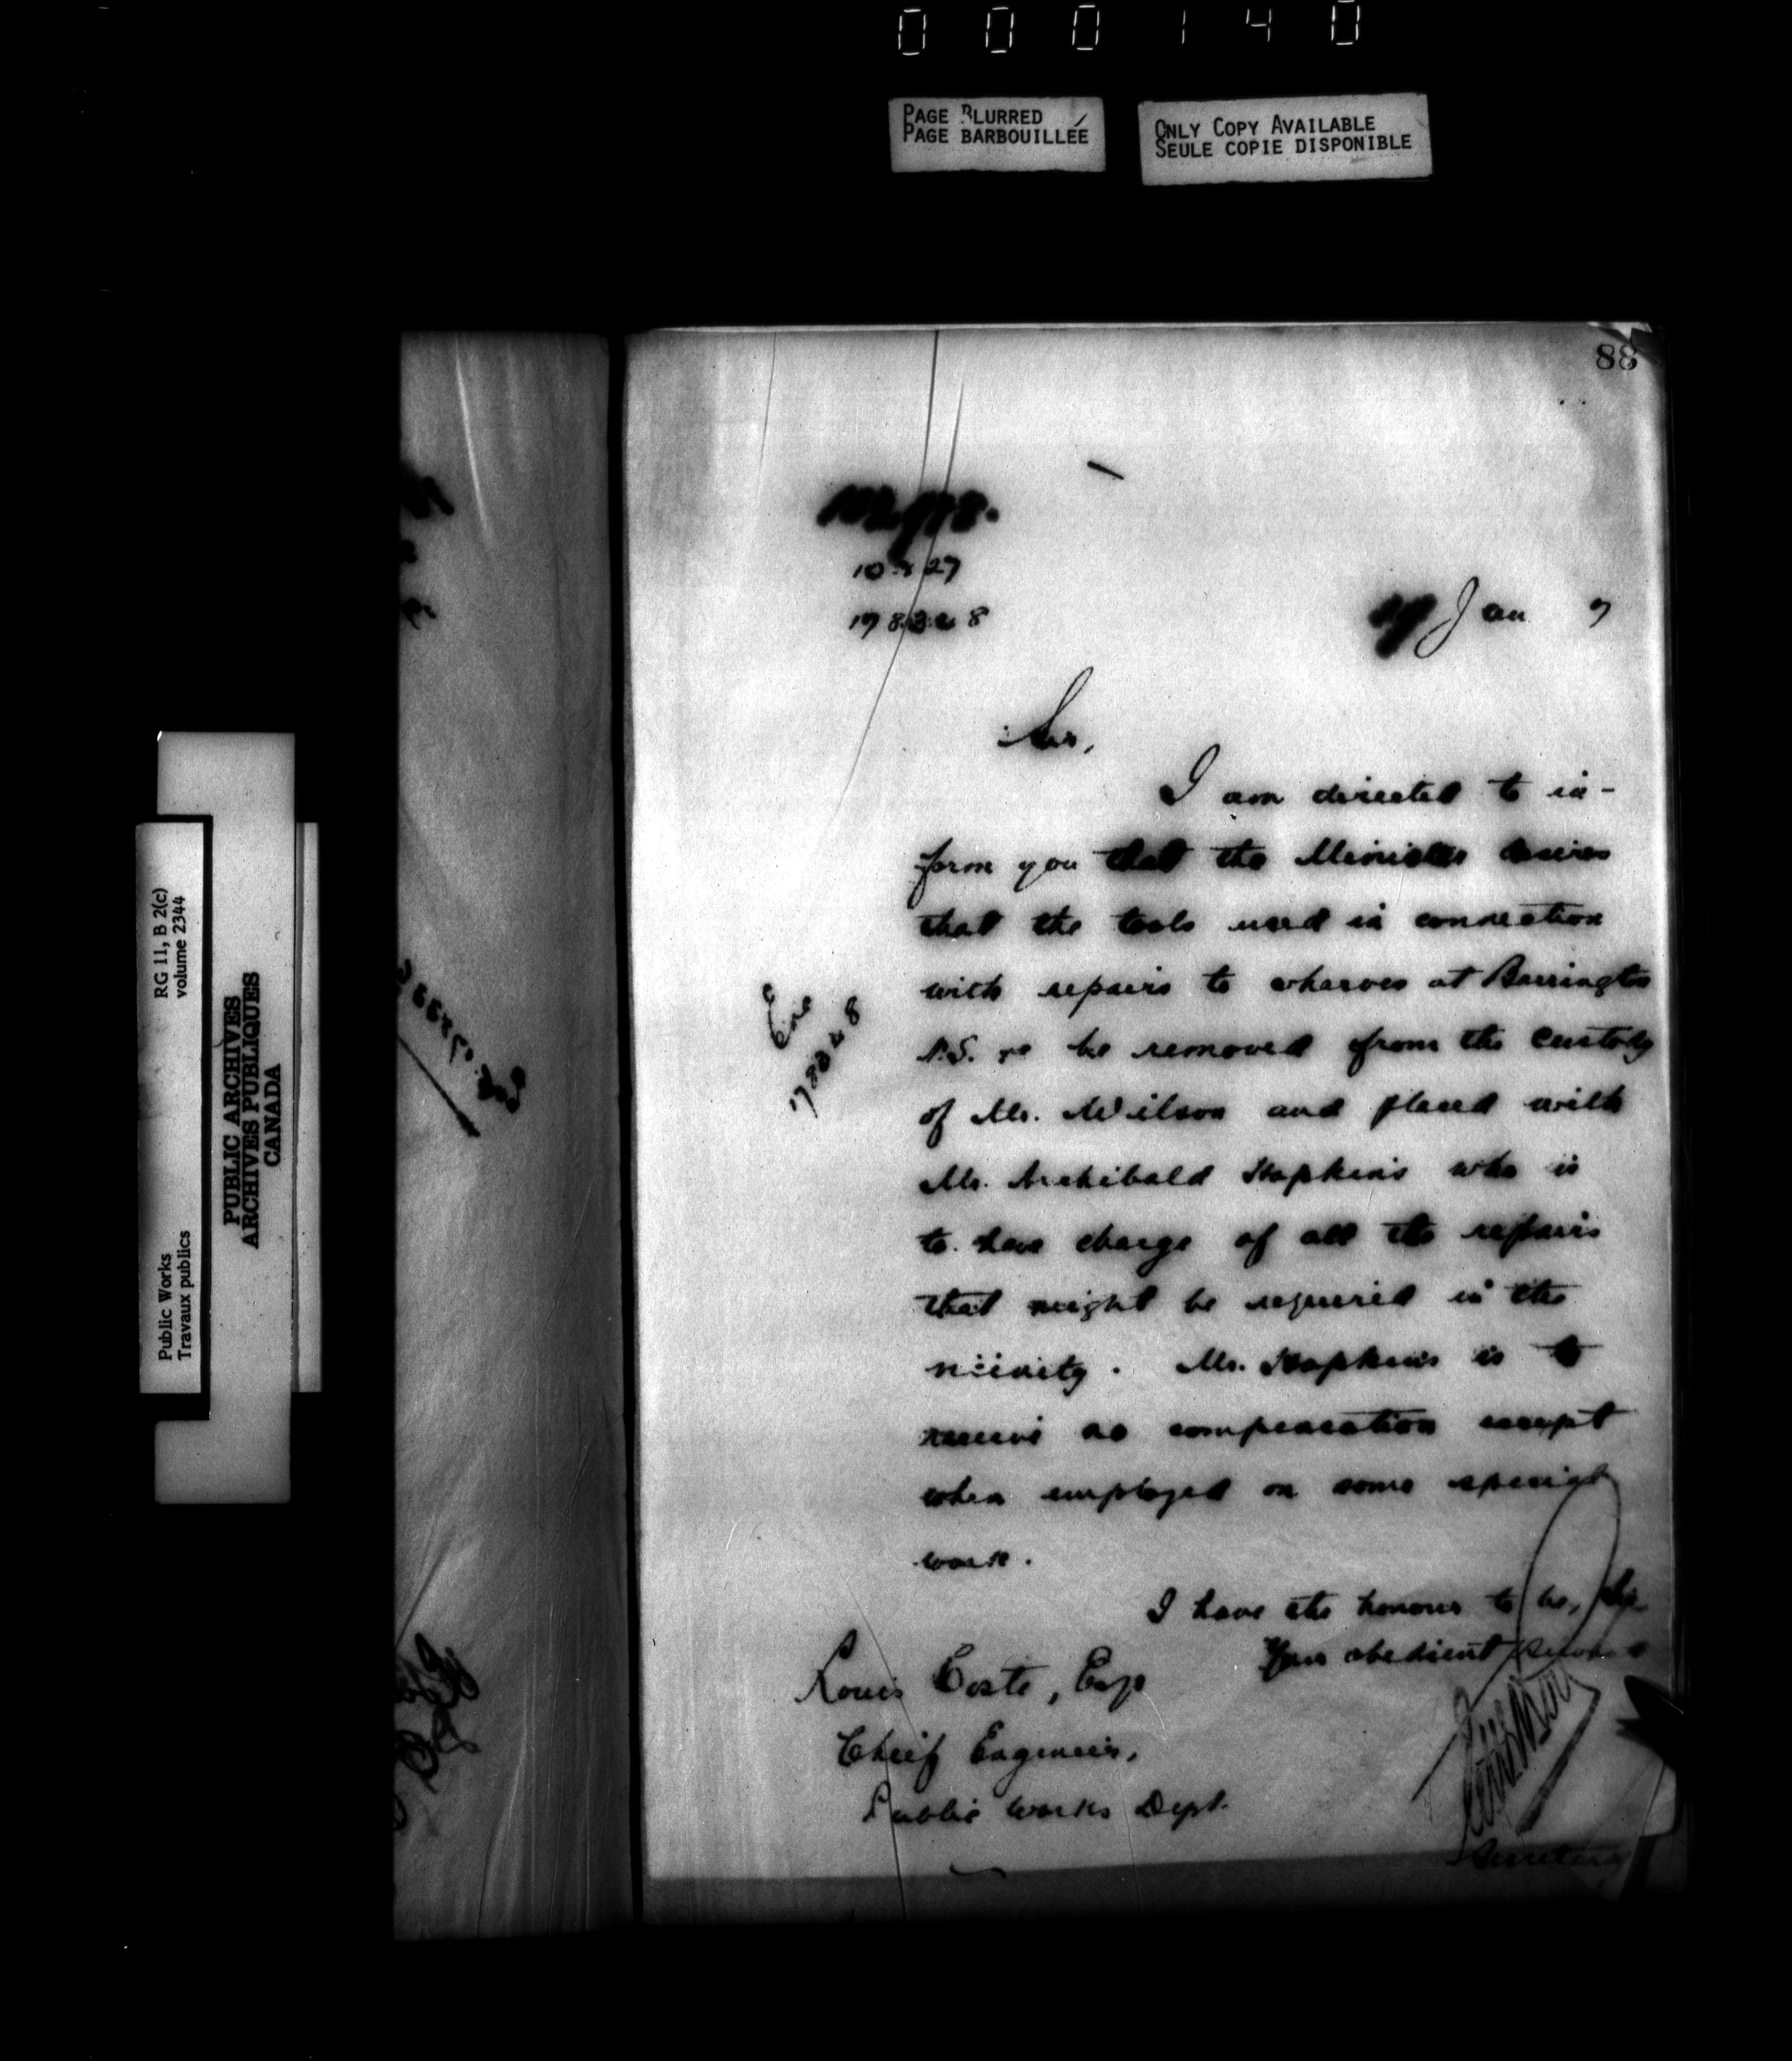 000140
PAGE BLURRED
PAGE BARBOUILLÉE
ONLY COPY AVAILABLE
SEULE COPIE DISPONIBLE
88
Jan 7
Sir,
I am directed to in-
form you that the Minister desires
that the tools used in connection
with repairs to wharves at Barrington
N.S. be removed from the custody
of Mr. Wilson and placed with
Mr. Archibald Hopkins who is
to have charge of all the repairs
that might be required in the
vicinity. Mr. Hopkins is to
receive no compensation except
when employed on some special
work.
I have the honour to be, Sir,
Your obedient servant
Louis Coste, Esq
Chief Engineer,
Public Works Dept.
Secretary
RG 11, B 2(c)
volume 2344
Public Works
Travaux publics
PUBLIC ARCHIVES
ARCHIVES PUBLIQUES
CANADA